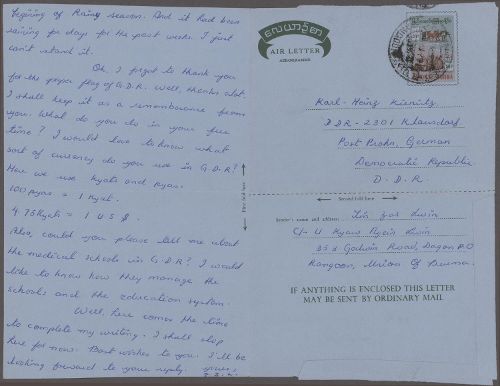 begining of Rainy season. And it had been
raining for days for the past weeks. I just
can't stand it.
Oh, I forgot to thank you
for the paper flag of G.D.R. Well, thanks alot.
I shall keep it as a rememberance from
you. What do you do in your free
time? I would love to know what
sort of currency do you use in G.D.R?
Here we use Kyats and Pyas.
100 pyas = 1 Kyat.
4.75 Kyats = 1 U S $.
Also, could you please tell me about
the medical schools in G.D.R? I would
like to know how they manage the
schools and the education system.
Well, here comes the time
to complete my writing. I shall stop
here for now. Best wishes to you. I'll be
looking forward to your reply.
AIR LETTER
AEROGRAMME
Karl-Heinz Kienitz
DDR - 2301 Klausdorf
Post Prohn, German
Democratic Republic
D.D.R.
First fold here
Second fold here
Sender's name and address:
C/- U Kyaw Nyein Lwin
353 Godwin Road, Dagon P.O
Rangoon, Union of Burma.
IF ANYTHING IS ENCLOSED THIS LETTER
MAY BE SENT BY ORDINARY MAIL